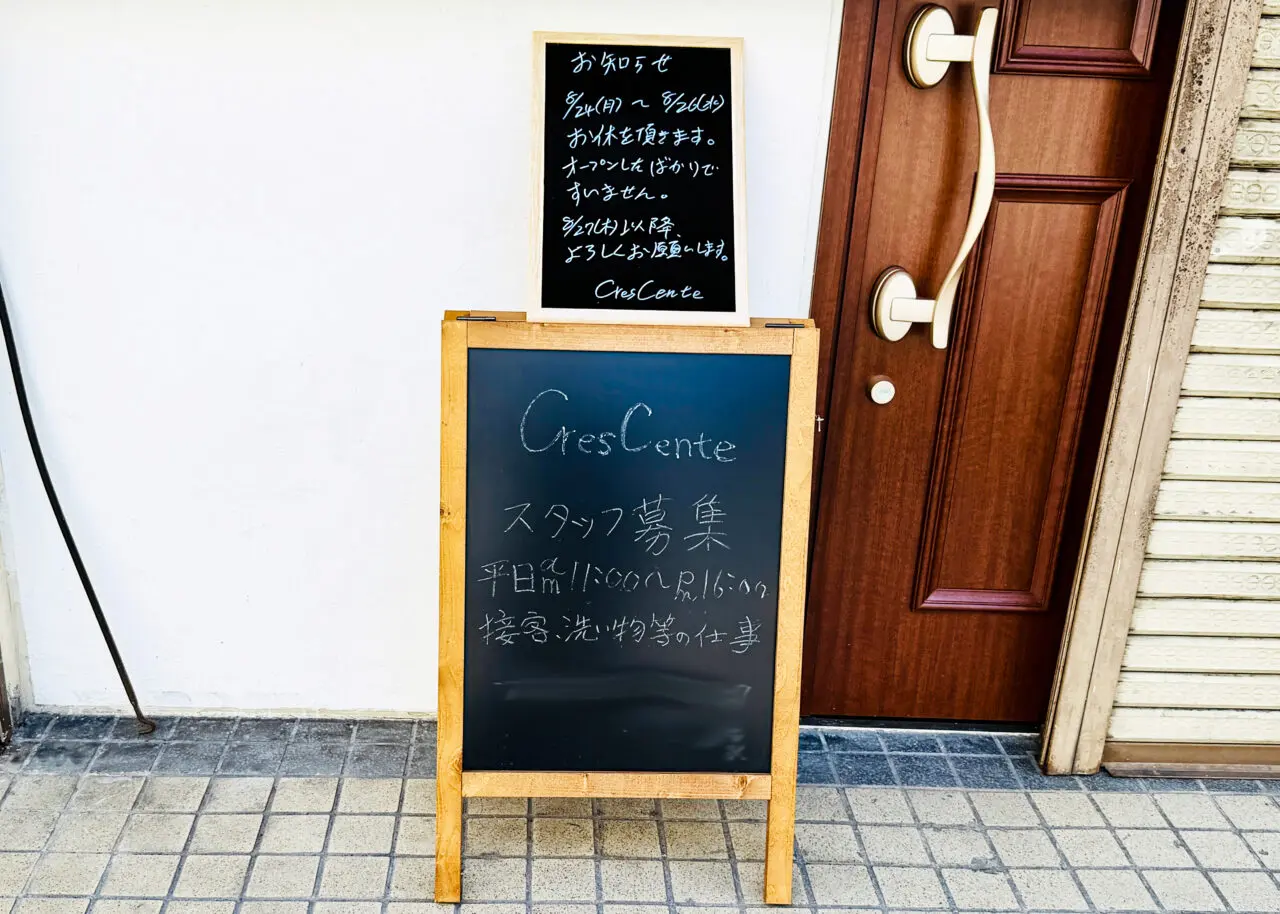 お知らせ
8/24(月)〜8/26(水)
お休を頂きます。
オープンしたばかりで
すいません。
8/27(木)以降、
よろしくお願いします。
CresCente
CresCente
スタッフ募集
平日am11:00〜Pm16:00
接客、洗い物等の仕事